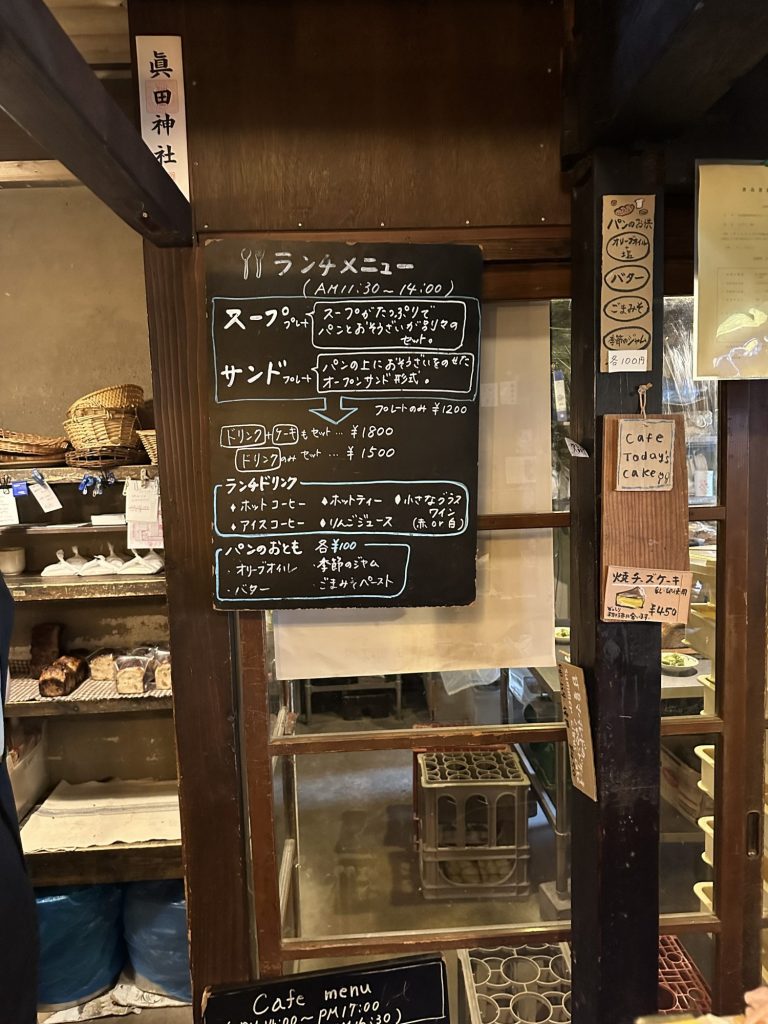 眞田神社
ランチメニュー
(AM11:30～14:00)
スーププレート
スープがたっぷりで
パンとおそうざいが別々の
セット。
サンドプレート
パンの上におそうざいをのせた
オープンサンド形式。
プレートのみ ¥1200
ドリンク+ケーキもセット… ¥1800
ドリンクのみセット… ¥1500
ランチドリンク
・ホットコーヒー ・ホットティー ・小さなグラス
ワイン
・アイスコーヒー ・りんごジュース (赤or白)
パンのおとも 各¥100
・オリーブオイル ・季節のジャム
・バター ・ごまみそペースト
パンのお供
オリーブオイル
+
塩
バター
ごまみそ
季節のジャム
各100円
Cafe
Today's
cake
焼チーズケーキ
¥450
Cafe menu
PM17:00